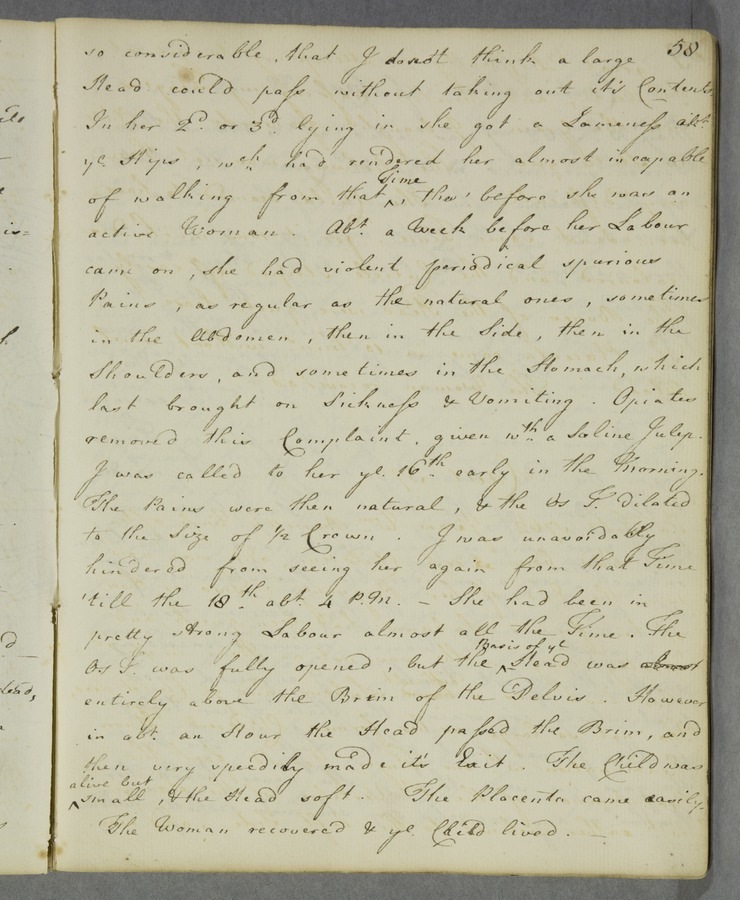 58
so considerable, that I do not think a large
Head could pass without taking out it's Contents
In her 2d. or 3d. lying in she got a Lameness abt.
ye. Hips, wch. had rendered her almost incapable
of walking from that Time, tho' before she was an
active Woman. Abt. a Week before her Labour
came on, she had violent periodical spurious
Pains, as regular as the natural ones, sometimes
in the Abdomen, then in the Side, then in the
Shoulders, and sometimes in the Stomach, which
last brought on Sickness & Vomiting. Opiates
removed this Complaint, given wth. a Saline Julep.
I was called to her ye. 16th. early in the Morning.
The Pains were then natural, & the Os T. dilated
to the Size of 1/2 Crown. I was unavoidably
hindered from seeing her again from that Time
'till the 18th. abt. 4 P.M. – She had been in
pretty strong Labour almost all the Time. The
Os T. was fully opened, but the Basis of ye Head was almost
entirely above the Brim of the Pelvis. However
in abt. an Hour the Head passed the Brim, and
then very speedily made it's Exit. The Child was
alive but small, & the Head soft. The Placenta came easily.
The Woman recovered & ye. Child lived. –